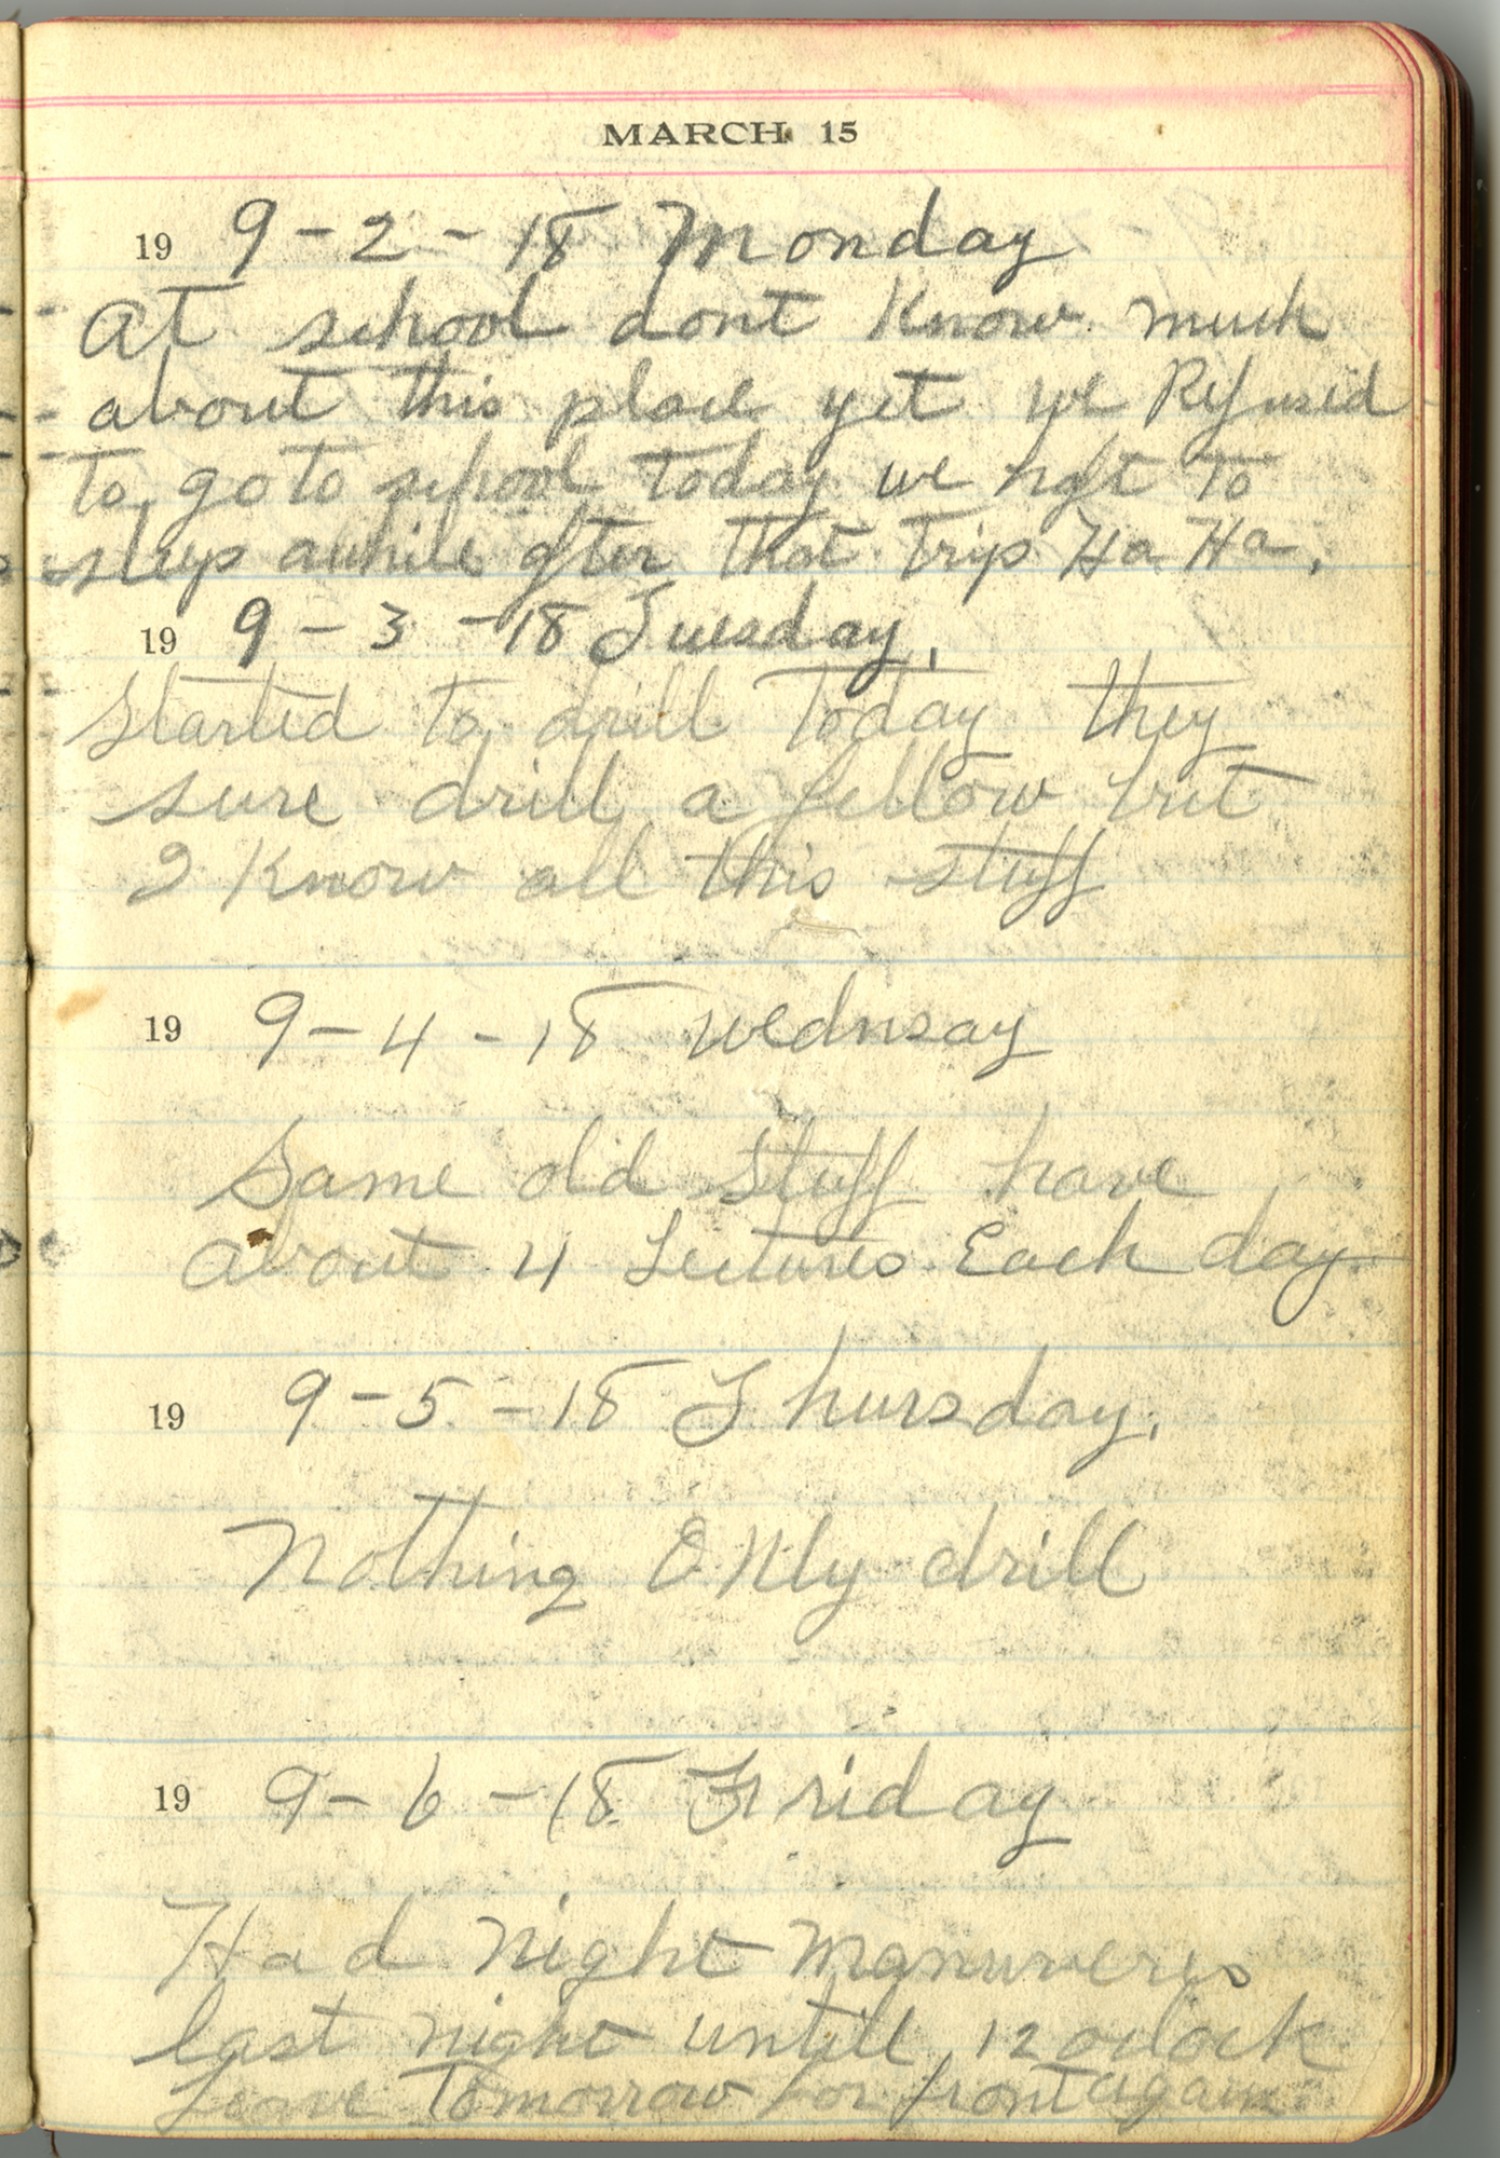 MARCH 15
19 9-2-18 Monday
At school dont Know much
about this place yet we Refused
to go to school today we haft to
sleep awhile after that trip Ha Ha.
19 9-3-18 Tuesday,
Started to drill today they
sure drill a fellow but
I Know all this stuff
19 9-4-18 Wednsay
Same old stuff have
About 4 Lectures Each day
19 9-5-18 Thursday,
Nothing Only drill
19 9-6-18 Friday
Had Night Manuvers
last night untill 12 oclock
Leave Tomorrow for front again